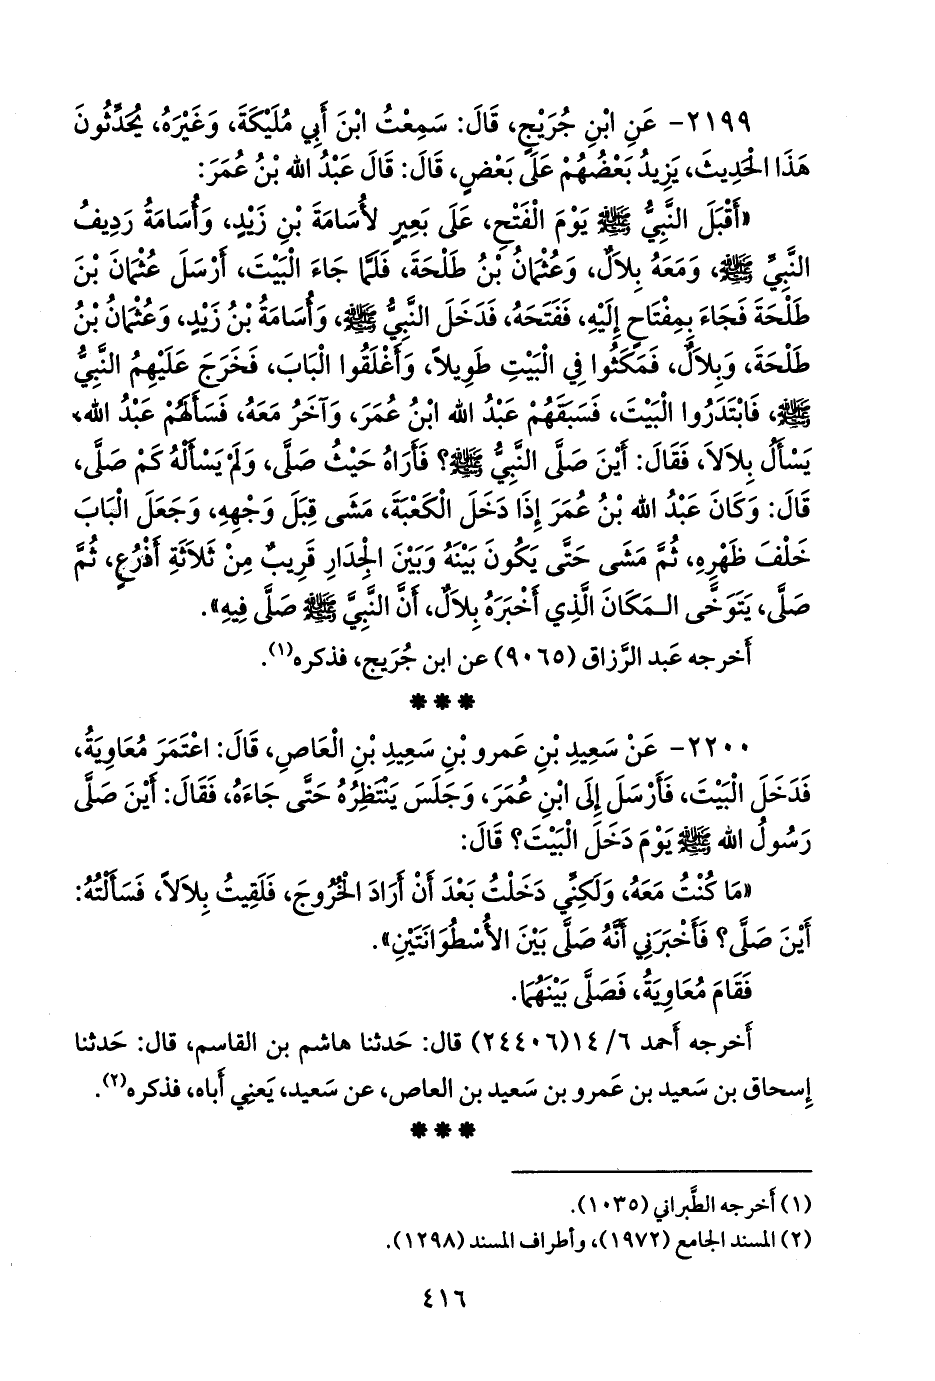 ٢١٩٩- عَنِ ابْنِ جُرَيْجٍ، قَالَ: سَمِعْتُ ابْنَ أَبِي مُلَيْكَةَ، وَغَيْرَهُ، يُحَدِّثُونَ
هَذَا الْحَدِيثَ، يَزِيدُ بَعْضُهُمْ عَلَى بَعْضٍ، قَالَ: قَالَ عَبْدُ الله بْنُ عُمَرَ:
«أَقْبَلَ النَّبِيُّ ﷺ يَوْمَ الْفَتْحِ، عَلَى بَعِيرٍ لأُسَامَةَ بْنِ زَيْدٍ، وَأُسَامَةُ رَدِيفُ
النَّبِيِّ ﷺ، وَمَعَهُ بِلاَلٌ، وَعُثْمَانُ بْنُ طَلْحَةَ، فَلَمَّا جَاءَ الْبَيْتَ، أَرْسَلَ عُثْمَانَ بْنَ
طَلْحَةَ فَجَاءَ بِمِفْتَاحٍ إِلَيْهِ، فَفَتَحَهُ، فَدَخَلَ النَّبِيُّ ﷺ، وَأُسَامَةُ بْنُ زَيْدٍ، وَعُثْمَانُ بْنُ
طَلْحَةَ، وَبِلاَلٌ، فَمَكَثُوا فِي الْبَيْتِ طَوِيلاً، وَأَغْلَقُوا الْبَابَ، فَخَرَجَ عَلَيْهِمُ النَّبِيُّ
ﷺ، فَابْتَدَرُوا الْبَيْتَ، فَسَبَقَهُمْ عَبْدُ الله ابْنُ عُمَرَ، وَآخَرُ مَعَهُ، فَسَأَلَهُمْ عَبْدُ الله،
يَسْأَلُ بِلاَلاَ، فَقَالَ: أَيْنَ صَلَّى النَّبِيُّ ﷺ؟ فَأَرَاهُ حَيْثُ صَلَّى، وَلَمْ يَسْأَلْهُ كَمْ صَلَّى،
قَالَ: وَكَانَ عَبْدُ الله بْنُ عُمَرَ إِذَا دَخَلَ الْكَعْبَةَ، مَشَى قِبَلَ وَجْهِهِ، وَجَعَلَ الْبَابَ
خَلْفَ ظَهْرِهِ، ثُمَّ مَشَى حَتَّى يَكُونَ بَيْنَهُ وَبَيْنَ الْجِدَارِ قَرِيبٌ مِنْ ثَلاَثَةِ أَذْرُعٍ، ثُمَّ
صَلَّى، يَتَوَخَّى الـمَكَانَ الَّذِي أَخْبَرَهُ بِلاَلٌ، أَنَّ النَّبِيَّ ﷺ صَلَّى فِيهِ».
أَخرجه عَبد الرَّزاق (٩٠٦٥) عن ابن جُرَيج، فذكره(١).
***
٢٢٠٠- عَنْ سَعِيدِ بْنِ عَمرو بْنِ سَعِيدِ بْنِ الْعَاصِ، قَالَ: اعْتَمَرَ مُعَاوِيَةُ،
فَدَخَلَ الْبَيْتَ، فَأَرْسَلَ إِلَى ابْنِ عُمَرَ، وَجَلَسَ يَنْتَظِرُهُ حَتَّى جَاءَهُ، فَقَالَ: أَيْنَ صَلَّى
رَسُولُ الله ﷺ يَوْمَ دَخَلَ الْبَيْتَ؟ قَالَ:
«مَا كُنْتُ مَعَهُ، وَلَكِنِّي دَخَلْتُ بَعْدَ أَنْ أَرَادَ الْخُرُوجَ، فَلَقِيتُ بِلاَلاً، فَسَأَلْتُهُ:
أَيْنَ صَلَّى؟ فَأَخْبَرَنِي أَنَّهُ صَلَّى بَيْنَ الأُسْطُوَانَتَيْنِ».
فَقَامَ مُعَاوِيَةُ، فَصَلَّى بَيْنَهُمَا.
أَخرجه أَحمد ٦/ ١٤(٢٤٤٠٦) قال: حَدثنا هاشم بن القاسم، قال: حَدثنا
إِسحاق بن سَعيد بن عَمرو بن سَعيد بن العاص، عن سَعيد، يَعنِي أَباه، فذكره(٢).
***
(١) أَخرجه الطَّبراني (١٠٣٥).
(٢) المسند الجامع (١٩٧٢)، وأطراف المسند (١٢٩٨).
٤١٦